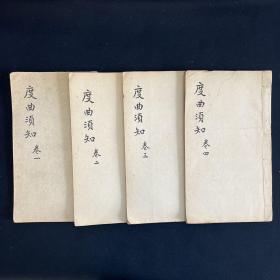 度曲須知 卷一
度曲須知 卷二
度曲須知 卷三
度曲須知 卷四